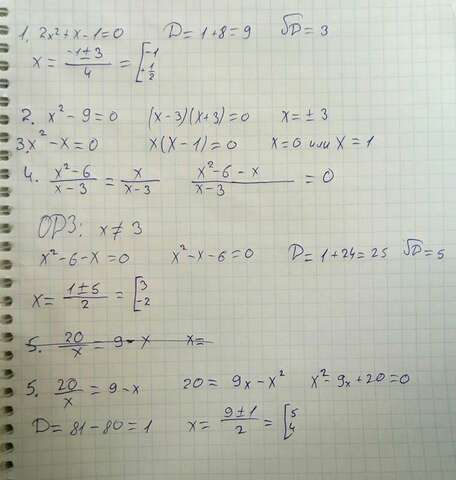 1. 2x²+x-1=0 D=1+8=9 √D=3
x = (-1±3)/4 = [-1 1/2
2. x²-9=0 (x-3)(x+3)=0 x=±3
3. x²-x=0 x(x-1)=0 x=0 или x=1
4. (x²-6)/(x-3) = x/(x-3) (x²-6-x)/(x-3) = 0
ОРЗ: x≠3
x²-6-x=0 x²-x-6=0 D=1+24=25 √D=5
x = (1±5)/2 = [3 -2
5. 20/x = 9-x x=
5. 20/x = 9-x 20=9x-x² x²-9x+20=0
D=81-80=1 x = (9±1)/2 = [5 4